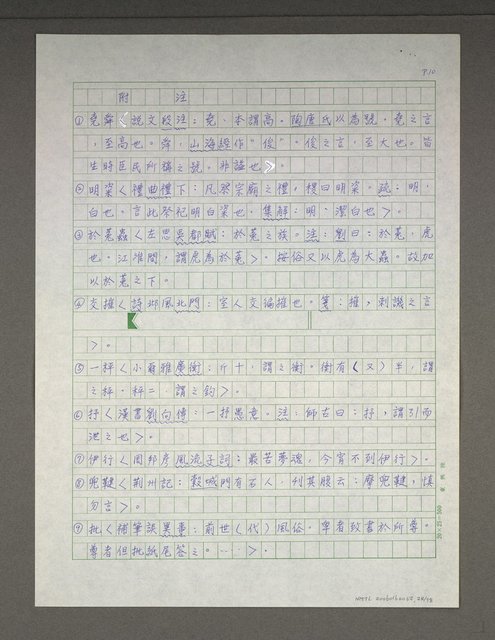 P.10
附　注
①堯舜《說文段注：堯、本謂高。陶唐氏以為號。堯之言
，至高也。舜，山海經作"俊"。俊之言，至大也。皆
生時臣民所稱之號。非謚也》。
②明粢〈禮曲禮下：凡祭宗廟之禮，稷曰明粢。疏：明，
白也。言此祭祀明白粢也。集解：明、潔白也〉。
③於菟蟲〈左思吳都賦：於菟之族。注：劉曰：於菟，虎
也。江淮間，謂虎為於菟〉。按俗又以虎為大蟲。故加
以於菟之下。
④交摧〈詩邶風北門：室人交徧摧也。箋：摧，刺譏之言
〉。
⑤一秤〈小爾雅廣衡：斤十，謂之衡。衡有（又）半，謂
之秤。秤二，謂之鈞〉。
⑥抒〈漢書劉向傳：一抒愚意。注：師古曰：抒，謂引而
泄之也〉。
⑦伊行〈周邦彥風流子詞：最苦夢魂，今宵不到伊行〉。
⑧兜鞬〈荊州記：穀城門有石人，刊其腹云：摩兜鞬，慎
勿言〉。
⑨批〈補筆談異事：前世（代）風俗。卑者致書於所尊。
尊者但批紙尾答之。…〉。
20×25=500
NMTL 20060160052, 28/38